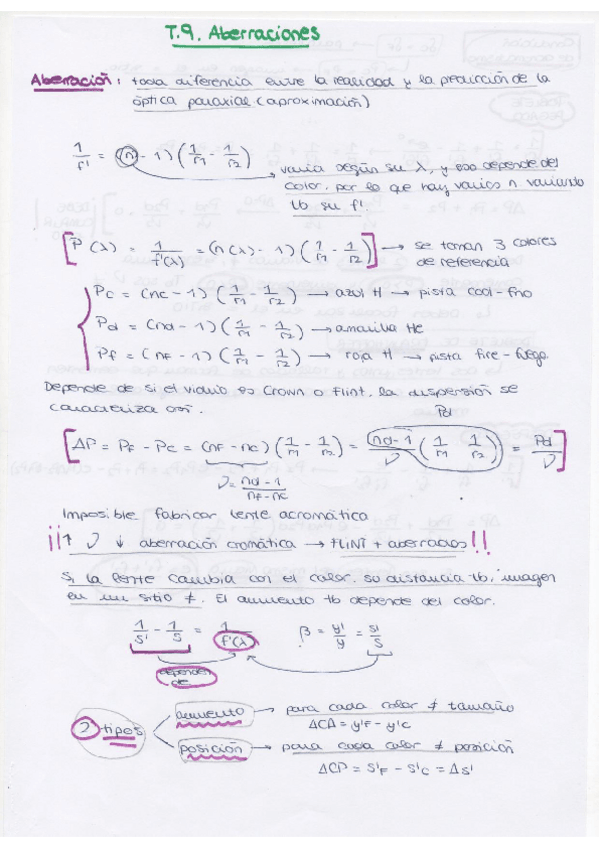 T.9. Aberraciones
Aberración: toda diferencia entre la realidad y la predicción de la
óptica paraxial (aproximación)
1/f' = (n - 1) (1/r1 - 1/r2)
varia según su λ, y eso depende del
color, por lo que hay varios n variando
tb su f'.
[P(λ) = 1/f'(λ) = (n(λ) - 1) (1/r1 - 1/r2)] → se toman 3 colores
de referencia
Pc = (nc - 1) (1/r1 - 1/r2) → azul H → pista cool-frio
Pd = (nd - 1) (1/r1 - 1/r2) → amarilla He
Pf = (nF - 1) (1/r1 - 1/r2) → roja H → pista fire-fuego
Depende de si el vidrio es Crown o Flint. la dispersión se
caracteriza así.
Pd
[ΔP = PF - PC = (nF - nc) (1/r1 - 1/r2) = nd-1/ν (1/r1 - 1/r2) = Pd/ν]
ν = nd - 1/nF - nc
Imposible fabricar lente acromática
¡¡↑ ν ↓ aberración cromática → FLINT + aberraciós!!
Si la lente cambia con el color. su distancia tb, imagen
en un sitio ≠. El aumento tb depende del color.
1/s' - 1/s = 1/f'(λ) β = y'/y = s'/s
dependen
de
2 tipos
aumento → para cada color ≠ tamaño
ΔCA = y'F - y'C
posición → para cada color ≠ posición
ΔCP = s'F - s'C = Δs'